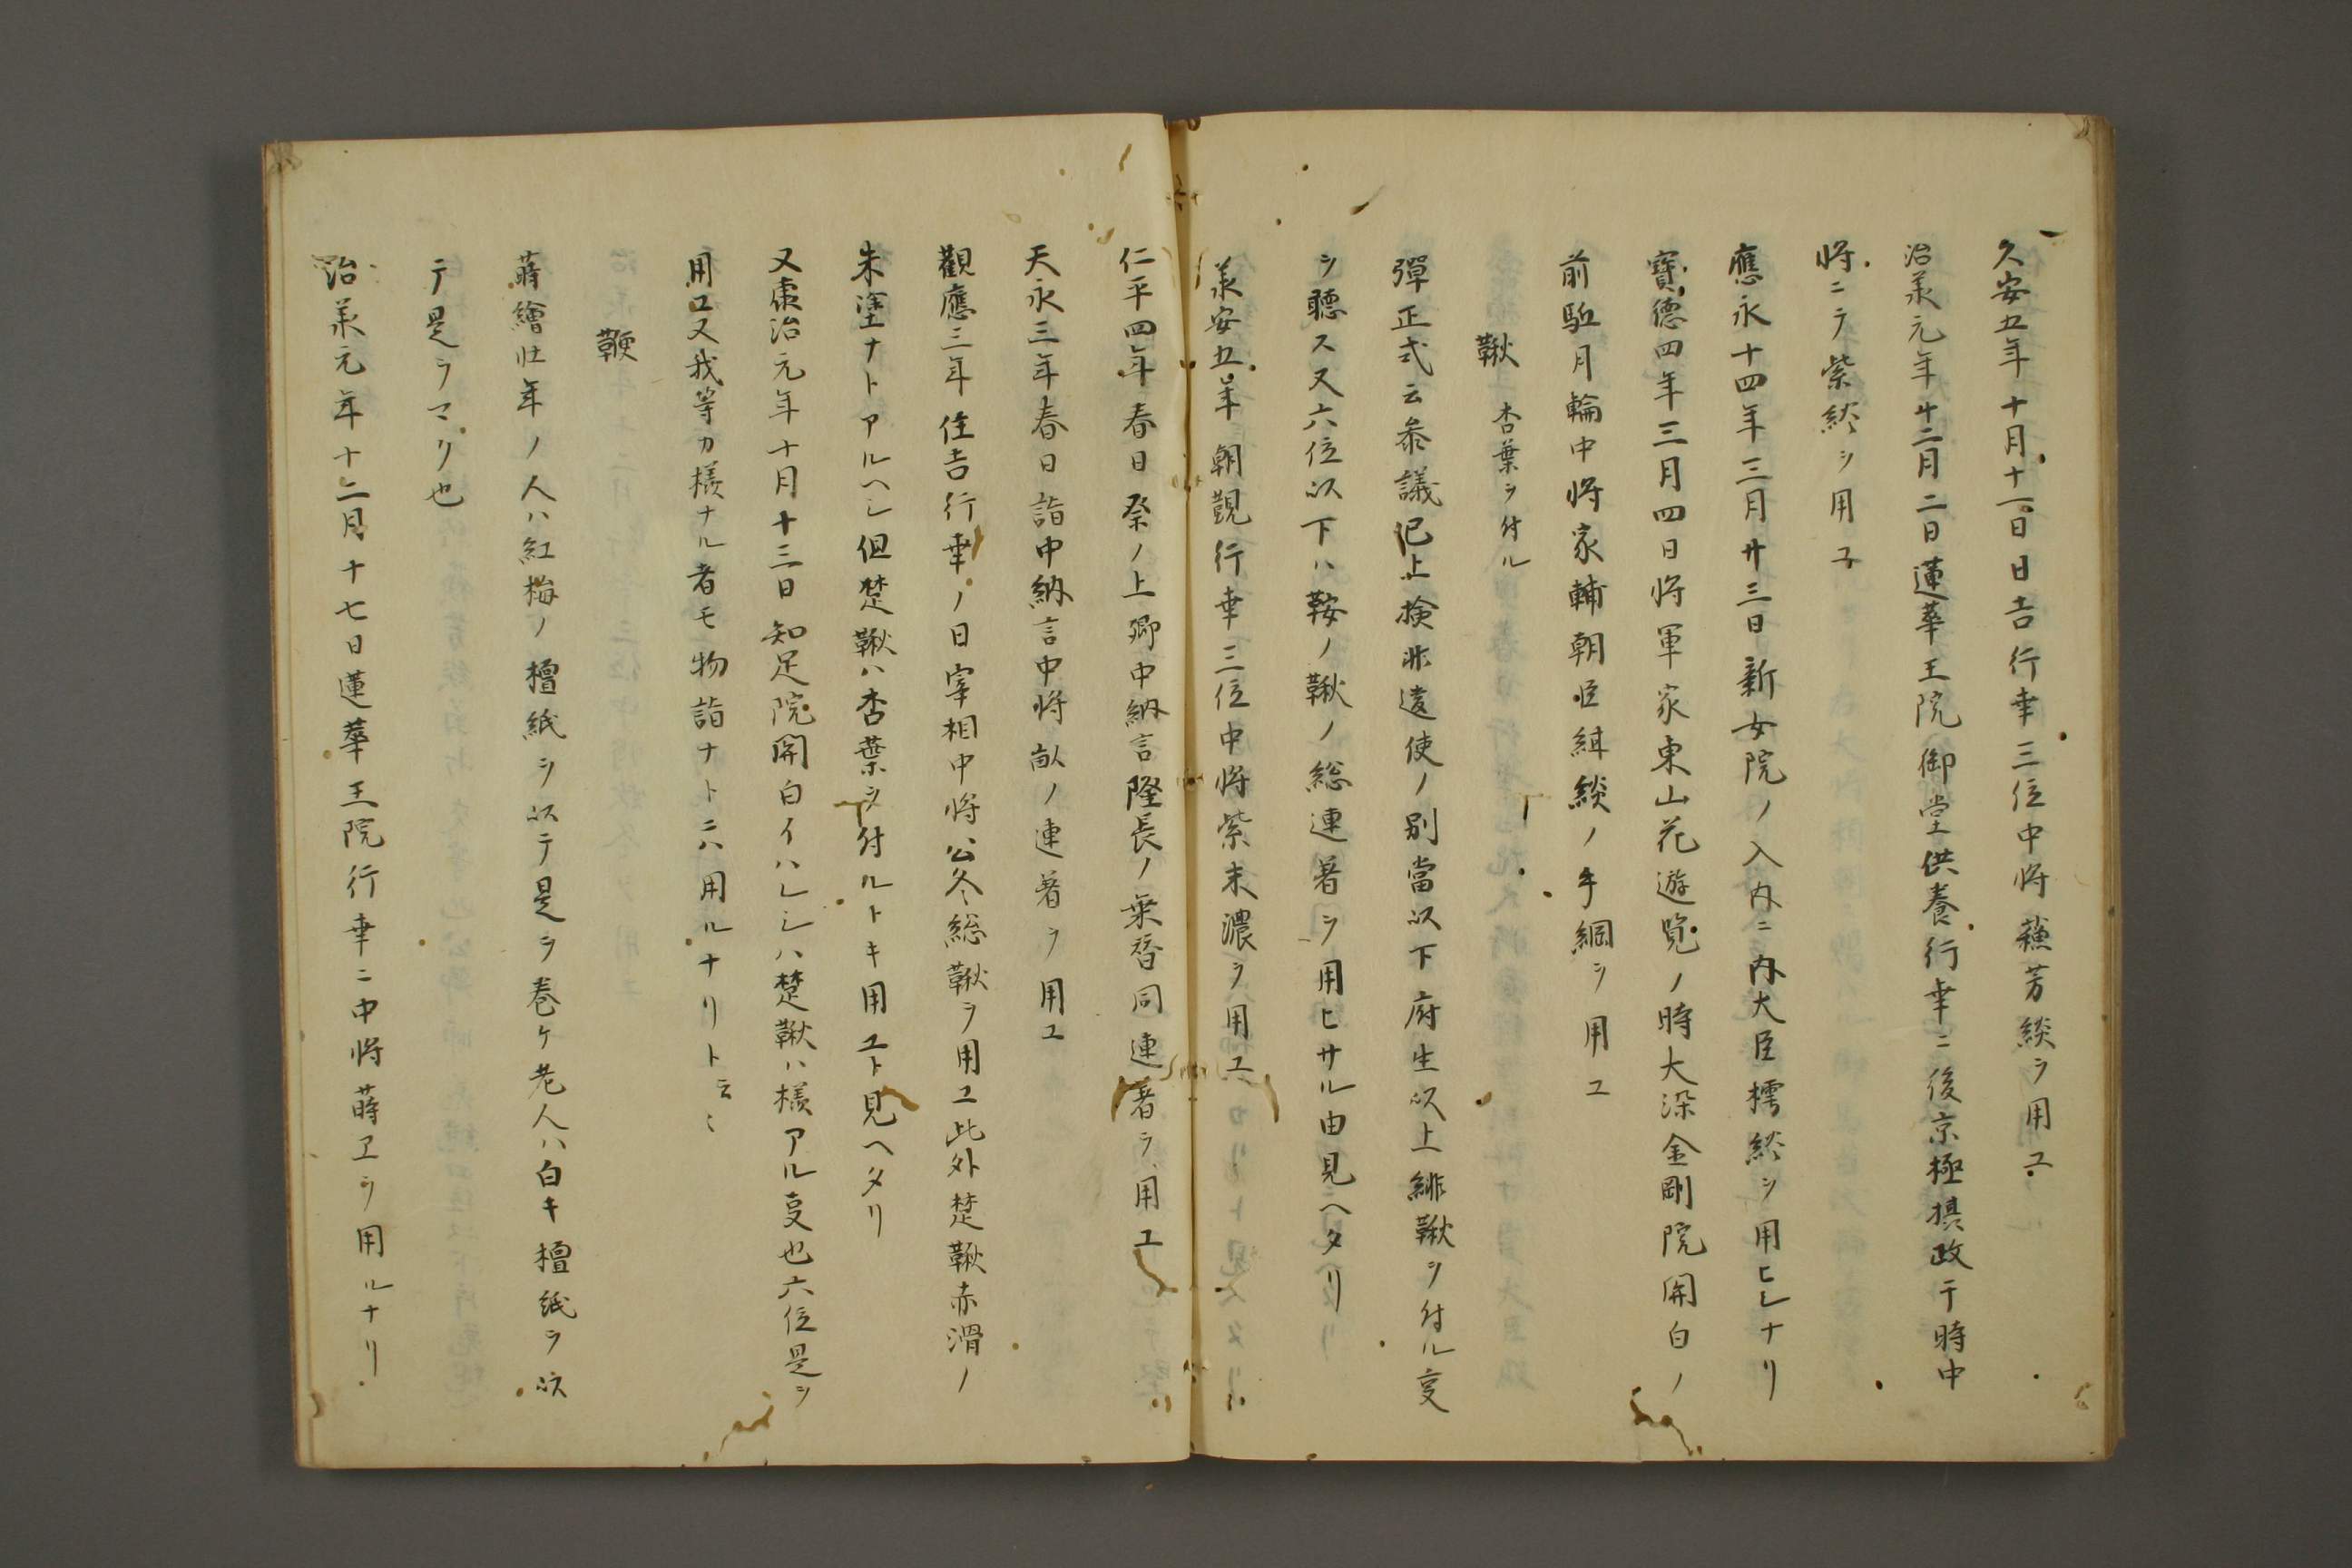 久安五年十月十一日日吉行幸三位中将蘓芳緂ヲ用ユ
治承元年十二月二日蓮華王院御堂供養行幸ニ後京極摂政于時中
将ニテ紫緂ヲ用ユ
應永十四年三月廿三日新女院ノ入内ニ内大臣樗緂ヲ用ヒシナリ
寳德四年三月四日将軍家東山花遊覧ノ時大染金剛院関白ノ
前駈月輪中将家輔朝臣緂ノ手綱ヲ用ユ
鞦 杏葉ヲ付ル
彈正式云叅議已上檢非違使ノ別當以下府生以上緋鞦ヲ付ル叓
ヲ聴ス又六位以下ハ鞍ノ鞦ノ総連著ヲ用ヒサル由見ヘタリ
承安五年朝覲行幸三位中将紫末濃ヲ用ユ
仁平四年春日祭ノ上卿中納言隆長ノ乗替同連著ヲ用ユ
天永三年春日詣中納言中将畝ノ連著ヲ用ユ
觀應三年住吉行幸ノ日宰相中将公冬総鞦ヲ用ユ此外楚鞦赤滑ノ
朱塗ナトアルヘシ但楚鞦ハ杏葉ヲ付ルトキ用ユト見ヘタリ
又康治元年十月十三日知足院関白イハレシハ楚鞦ハ様アル叓也六位是ヲ
用ユ又我等カ様ナル者モ物詣ナトニハ用ルナリト云々
鞭
蒔繪壮年ノ人ハ紅梅ノ檀紙ヲ以テ是ヲ巻ケ老人ハ白キ檀紙ヲ以
テ是ヲマリ也
治承元年十二月十七日蓮華王院行幸ニ中将蒔ヱヲ用ルナリ